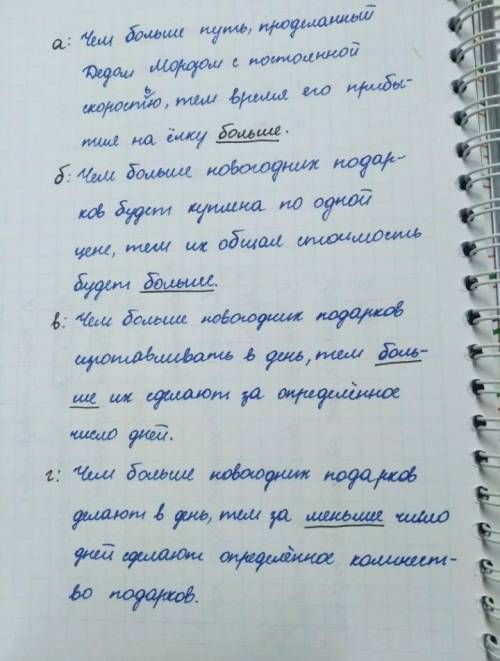 а: Чем больше путь, проделанный
Дедом Морозом с постоянной
скоростью, тем время его прибы-
тия на ёлку больше.
б: Чем больше новогодних подар-
ков будет куплена по одной
цене, тем их общая стоимость
будет больше.
в: Чем больше новогодних подарков
изготавливать в день, тем боль-
ше их сделают за определённое
число дней.
г: Чем больше новогодних подарков
делают в день, тем за меньшее число
дней сделают определённое количест-
во подарков.